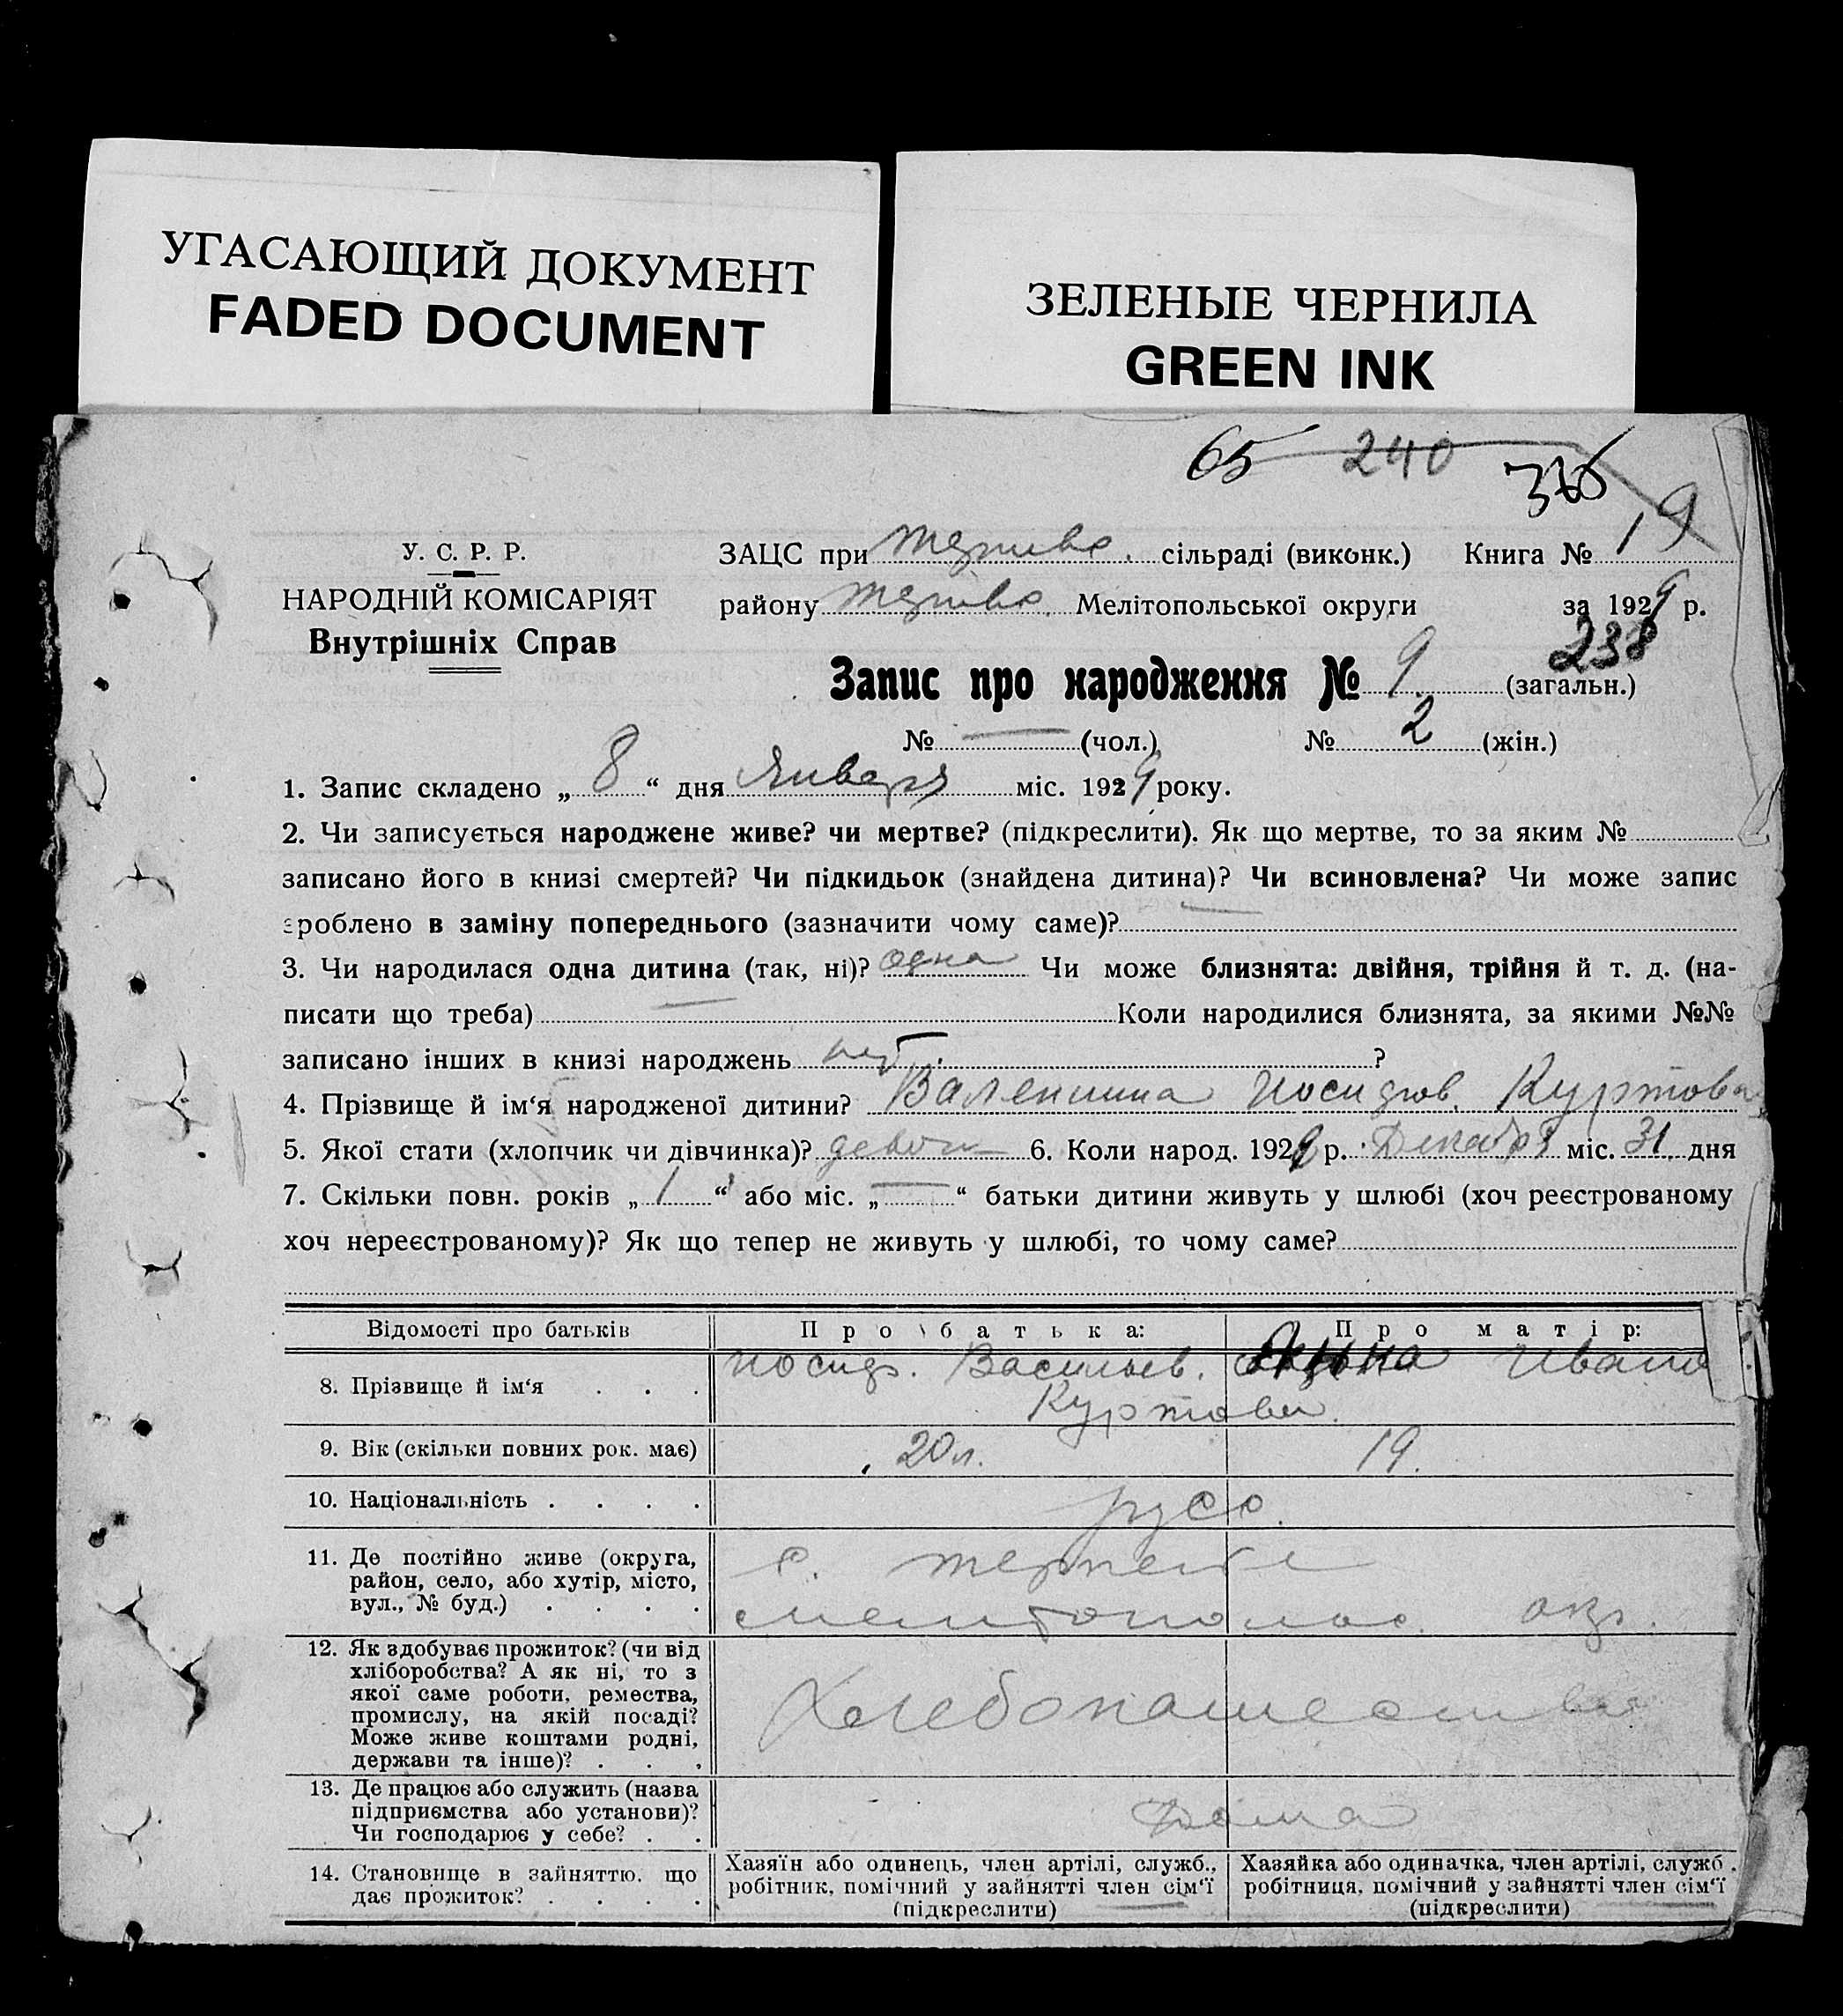 УГАСАЮЩИЙ ДОКУМЕНТ
FADED DOCUMENT
ЗЕЛЕНЫЕ ЧЕРНИЛА
GREEN INK
65 240
У. С. Р. Р.
НАРОДНІЙ КОМІСАРІЯТ
Внутрішніх Справ
ЗАЦС при сільраді (виконк.) Книга № 19
району Мелітопольської округи за 1929 р.
238
Запис про народження № 9 (загальн.)
№ — (чол.) № 2 (жін.)
1. Запис складено „ 8 “ дня Января міс. 1929 року.
2. Чи записується народжене живе? чи мертве? (підкреслити). Як що мертве, то за яким №
записано його в книзі смертей? Чи підкидьок (знайдена дитина)? Чи всиновлена? Чи може запис
зроблено в заміну попереднього (зазначити чому саме)? —
3. Чи народилася одна дитина (так, ні)? одна Чи може близнята: двійня, трійня й т. д. (на-
писати що треба) — Коли народилися близнята, за якими №№
записано інших в книзі народжень нет ?
4. Прізвище й ім‘я народженої дитини? Валентина Иосифов. Куртова
5. Якої стати (хлопчик чи дівчинка)? 6. Коли народ. 192 р. Декабря міс. 31 дня
7. Скільки повн. років „ 1 “ або міс. „ — “ батьки дитини живуть у шлюбі (хоч реєстрованому
хоч нереєстрованому)? Як що тепер не живуть у шлюбі, то чому саме?
Відомості про батьків Про батька: Про матір:
8. Прізвище й ім‘я . . . Иосиф. Васильев. Ивано
Куртовы.
9. Вік (скільки повних рок. має) 20 л. 19.
10. Національність . . . . русс.
11. Де постійно живе (округа,
район, село, або хутір, місто,
вул., № буд.) . . . .
с. Терпенье
Мелитопольс. окр.
12. Як здобуває прожиток? (чи від
хліборобства? А як ні, то з
якої саме роботи, ремества,
промислу, на якій посаді?
Може живе коштами родні,
держави та інше)? . . .
Хлебопашество
13. Де працює або служить (назва
підприємства або установи)?
Чи господарює у себе? . .
Дома
14. Становище в зайняттю, що
дає прожиток? . . . .
Хазяїн або одинець, член артілі, служб.,
робітник, помічний у зайнятті член сім‘ї
(підкреслити)
Хазяйка або одиначка, член артілі, служб.
робітниця, помічний у зайнятті член сім‘ї
(підкреслити)